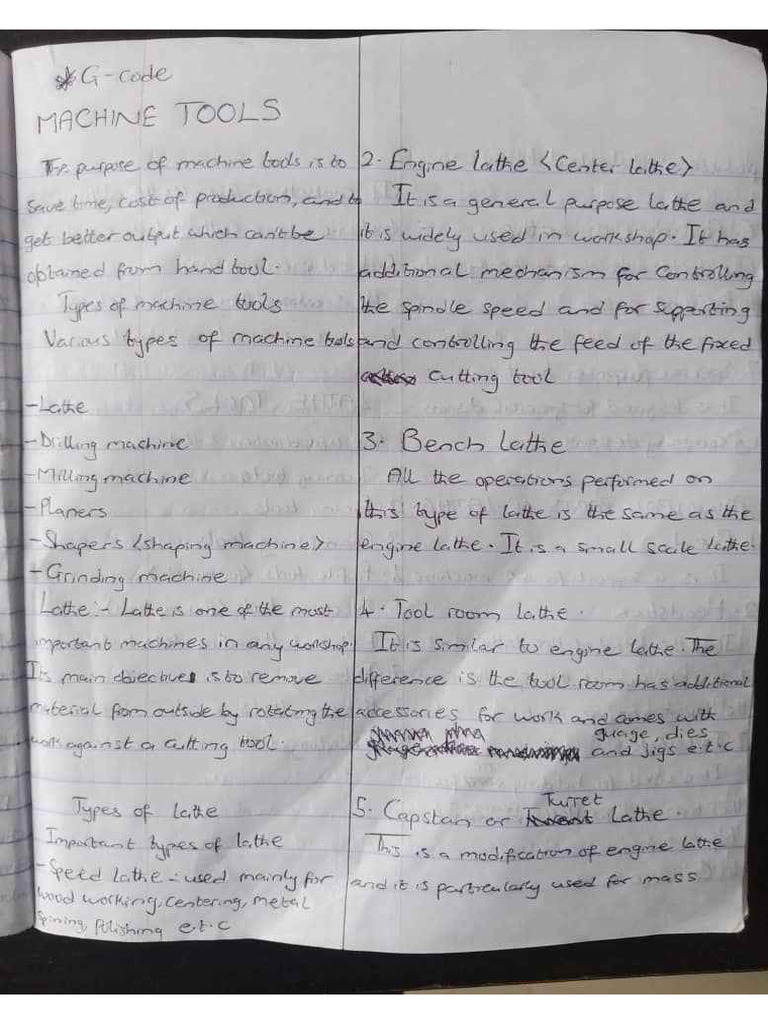 *G-code
MACHINE TOOLS
The purpose of machine tools is to
save time, cost of production, and to
get better output which can't be
obtained from hand tool.
Types of machine tools
Various types of machine tools
-Lathe
-Drilling machine
-Milling machine
-Planers
-Shapers <shaping machine>
-Grinding machine
Lathe:- Lathe is one of the most
important machines in any workshop.
Its main objective is to remove
material from outside by rotating the
work against a cutting tool.
Types of lathe
Important types of lathe
-Speed lathe - used mainly for
wood working, centering, metal
spining, polishing e.t.c
2. Engine lathe <Center lathe>
It is a general purpose lathe and
it is widely used in workshop. It has
additional mechanism for controlling
the spindle speed and for supporting
and controlling the feed of the fixed
cutting tool
3. Bench lathe
All the operations performed on
this type of lathe is the same as the
engine lathe. It is a small scale lathe.
4. Tool room lathe.
It is similar to engine lathe. The
difference is the tool room has additional
accessories for work and comes with
guage, dies
and jigs e.t.c
5. Capstan or Turret Lathe.
This is a modification of engine lathe
and it is particularly used for mass